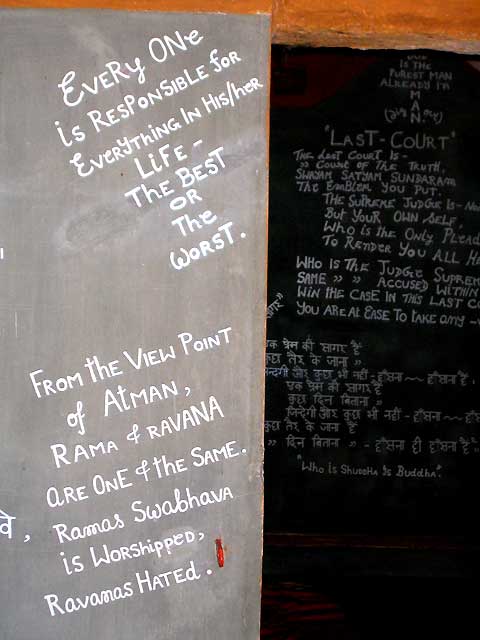 EVERY ONE
is RESPONSIBLE for
EVERYTHING IN HIS/HER
LIFE -
THE BEST
OR
The
WORST.
FROM the VIEW POINT
of ATMAN,
RAMA & RAVANA
ARE ONE & the SAME.
वे, Ramas Swabhava
is WORSHIPPED,
Ravanas HATED.
IS THE
PUREST MAN
ALREADY I'M
M
A
N
"LAST-COURT"
THE LAST COURT IS -
" COURT OF THE TRUTH,
SWAYAM SATYAM SUNDARAM
THE EMBLEM YOU PUT.
THE SUPREME JUDGE IS - No
BUT YOUR OWN SELF,
WHO IS THE ONLY PLEAD
TO RENDER YOU ALL HE
WHO IS THE JUDGE SUPREM
SAME " " ACCUSED WITHIN
WIN THE CASE IN THIS LAST CO
YOU ARE AT EASE TO TAKE ANY -
एक प्रेम की सागर है
कुछ तैर के जाना "
जिन्दगी और कुछ भी नहीं - हँसना ~~ हँसना है.
एक प्रेम की सागर है
कुछ दिन बिताना "
जिन्देगी और कुछ भी नहीं - हँसना ~~ हँस
कुछ तैर के जाना है
" दिन बिताना " - हँसना ही हँसना है
"Who is SHUDDHA is BUDDHA".